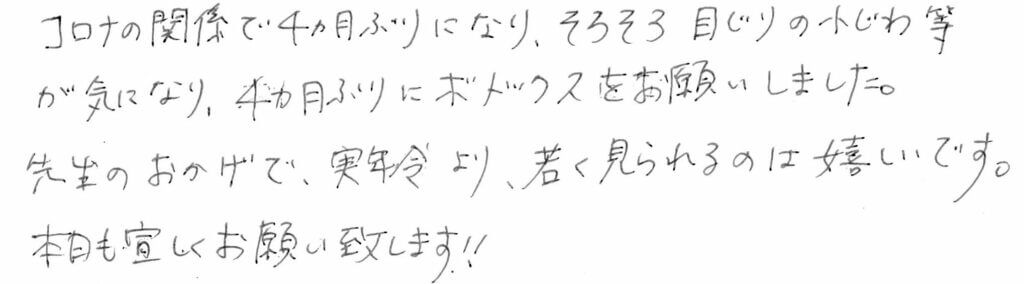 コロナの関係で4ヵ月ぶりになり、そろそろ目じりの小じわ等
が気になり、4カ月ぶりにボトックスをお願いしました。
先生のおかげで、実年令より、若く見られるのは嬉しいです。
本日も宜しくお願い致します!!